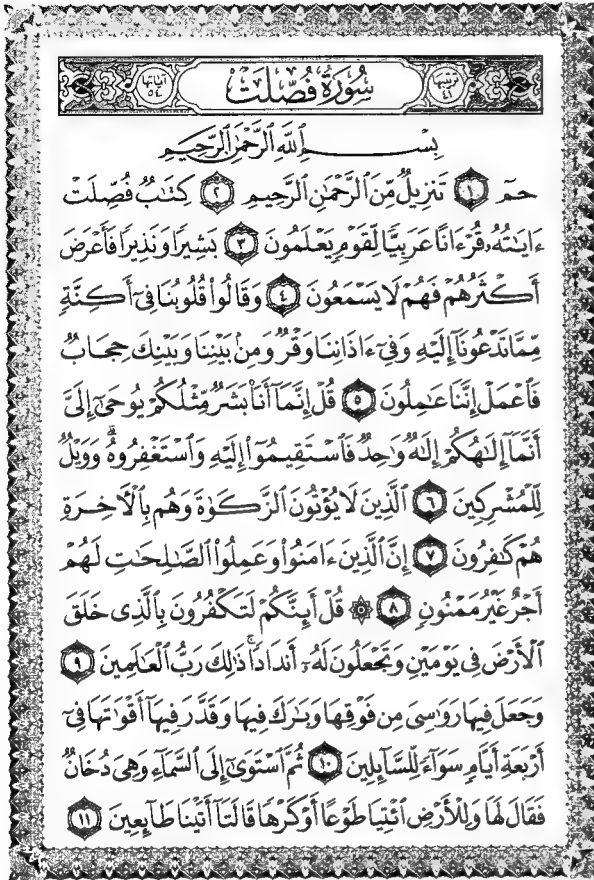 ترتيبها ٤١ سُورَةُ فُصِّلَتْ آياتها ٥٤
بِسْمِ ٱللَّهِ ٱلرَّحْمَٰنِ ٱلرَّحِيمِ
حمٓ ١ تَنزِيلٌ مِّنَ ٱلرَّحْمَٰنِ ٱلرَّحِيمِ ٢ كِتَٰبٌ فُصِّلَتْ
ءَايَٰتُهُۥ قُرْءَانًا عَرَبِيًّا لِّقَوْمٍ يَعْلَمُونَ ٣ بَشِيرًا وَنَذِيرًا فَأَعْرَضَ
أَكْثَرُهُمْ فَهُمْ لَا يَسْمَعُونَ ٤ وَقَالُوا۟ قُلُوبُنَا فِىٓ أَكِنَّةٍ
مِّمَّا تَدْعُونَآ إِلَيْهِ وَفِىٓ ءَاذَانِنَا وَقْرٌ وَمِنۢ بَيْنِنَا وَبَيْنِكَ حِجَابٌ
فَٱعْمَلْ إِنَّنَا عَٰمِلُونَ ٥ قُلْ إِنَّمَآ أَنَا۠ بَشَرٌ مِّثْلُكُمْ يُوحَىٰٓ إِلَىَّ
أَنَّمَآ إِلَٰهُكُمْ إِلَٰهٌ وَٰحِدٌ فَٱسْتَقِيمُوٓا۟ إِلَيْهِ وَٱسْتَغْفِرُوهُ ۗ وَوَيْلٌ
لِّلْمُشْرِكِينَ ٦ ٱلَّذِينَ لَا يُؤْتُونَ ٱلزَّكَوٰةَ وَهُم بِٱلْأَخِرَةِ
هُمْ كَٰفِرُونَ ٧ إِنَّ ٱلَّذِينَ ءَامَنُوا۟ وَعَمِلُوا۟ ٱلصَّٰلِحَٰتِ لَهُمْ
أَجْرٌ غَيْرُ مَمْنُونٍ ٨ ۞ قُلْ أَئِنَّكُمْ لَتَكْفُرُونَ بِٱلَّذِى خَلَقَ
ٱلْأَرْضَ فِى يَوْمَيْنِ وَتَجْعَلُونَ لَهُۥٓ أَندَادًا ۚ ذَٰلِكَ رَبُّ ٱلْعَٰلَمِينَ ٩
وَجَعَلَ فِيهَا رَوَٰسِىَ مِن فَوْقِهَا وَبَٰرَكَ فِيهَا وَقَدَّرَ فِيهَآ أَقْوَٰتَهَا فِىٓ
أَرْبَعَةِ أَيَّامٍ سَوَآءً لِّلسَّآئِلِينَ ١٠ ثُمَّ ٱسْتَوَىٰٓ إِلَى ٱلسَّمَآءِ وَهِىَ دُخَانٌ
فَقَالَ لَهَا وَلِلْأَرْضِ ٱئْتِيَا طَوْعًا أَوْ كَرْهًا قَالَتَآ أَتَيْنَا طَآئِعِينَ ١١